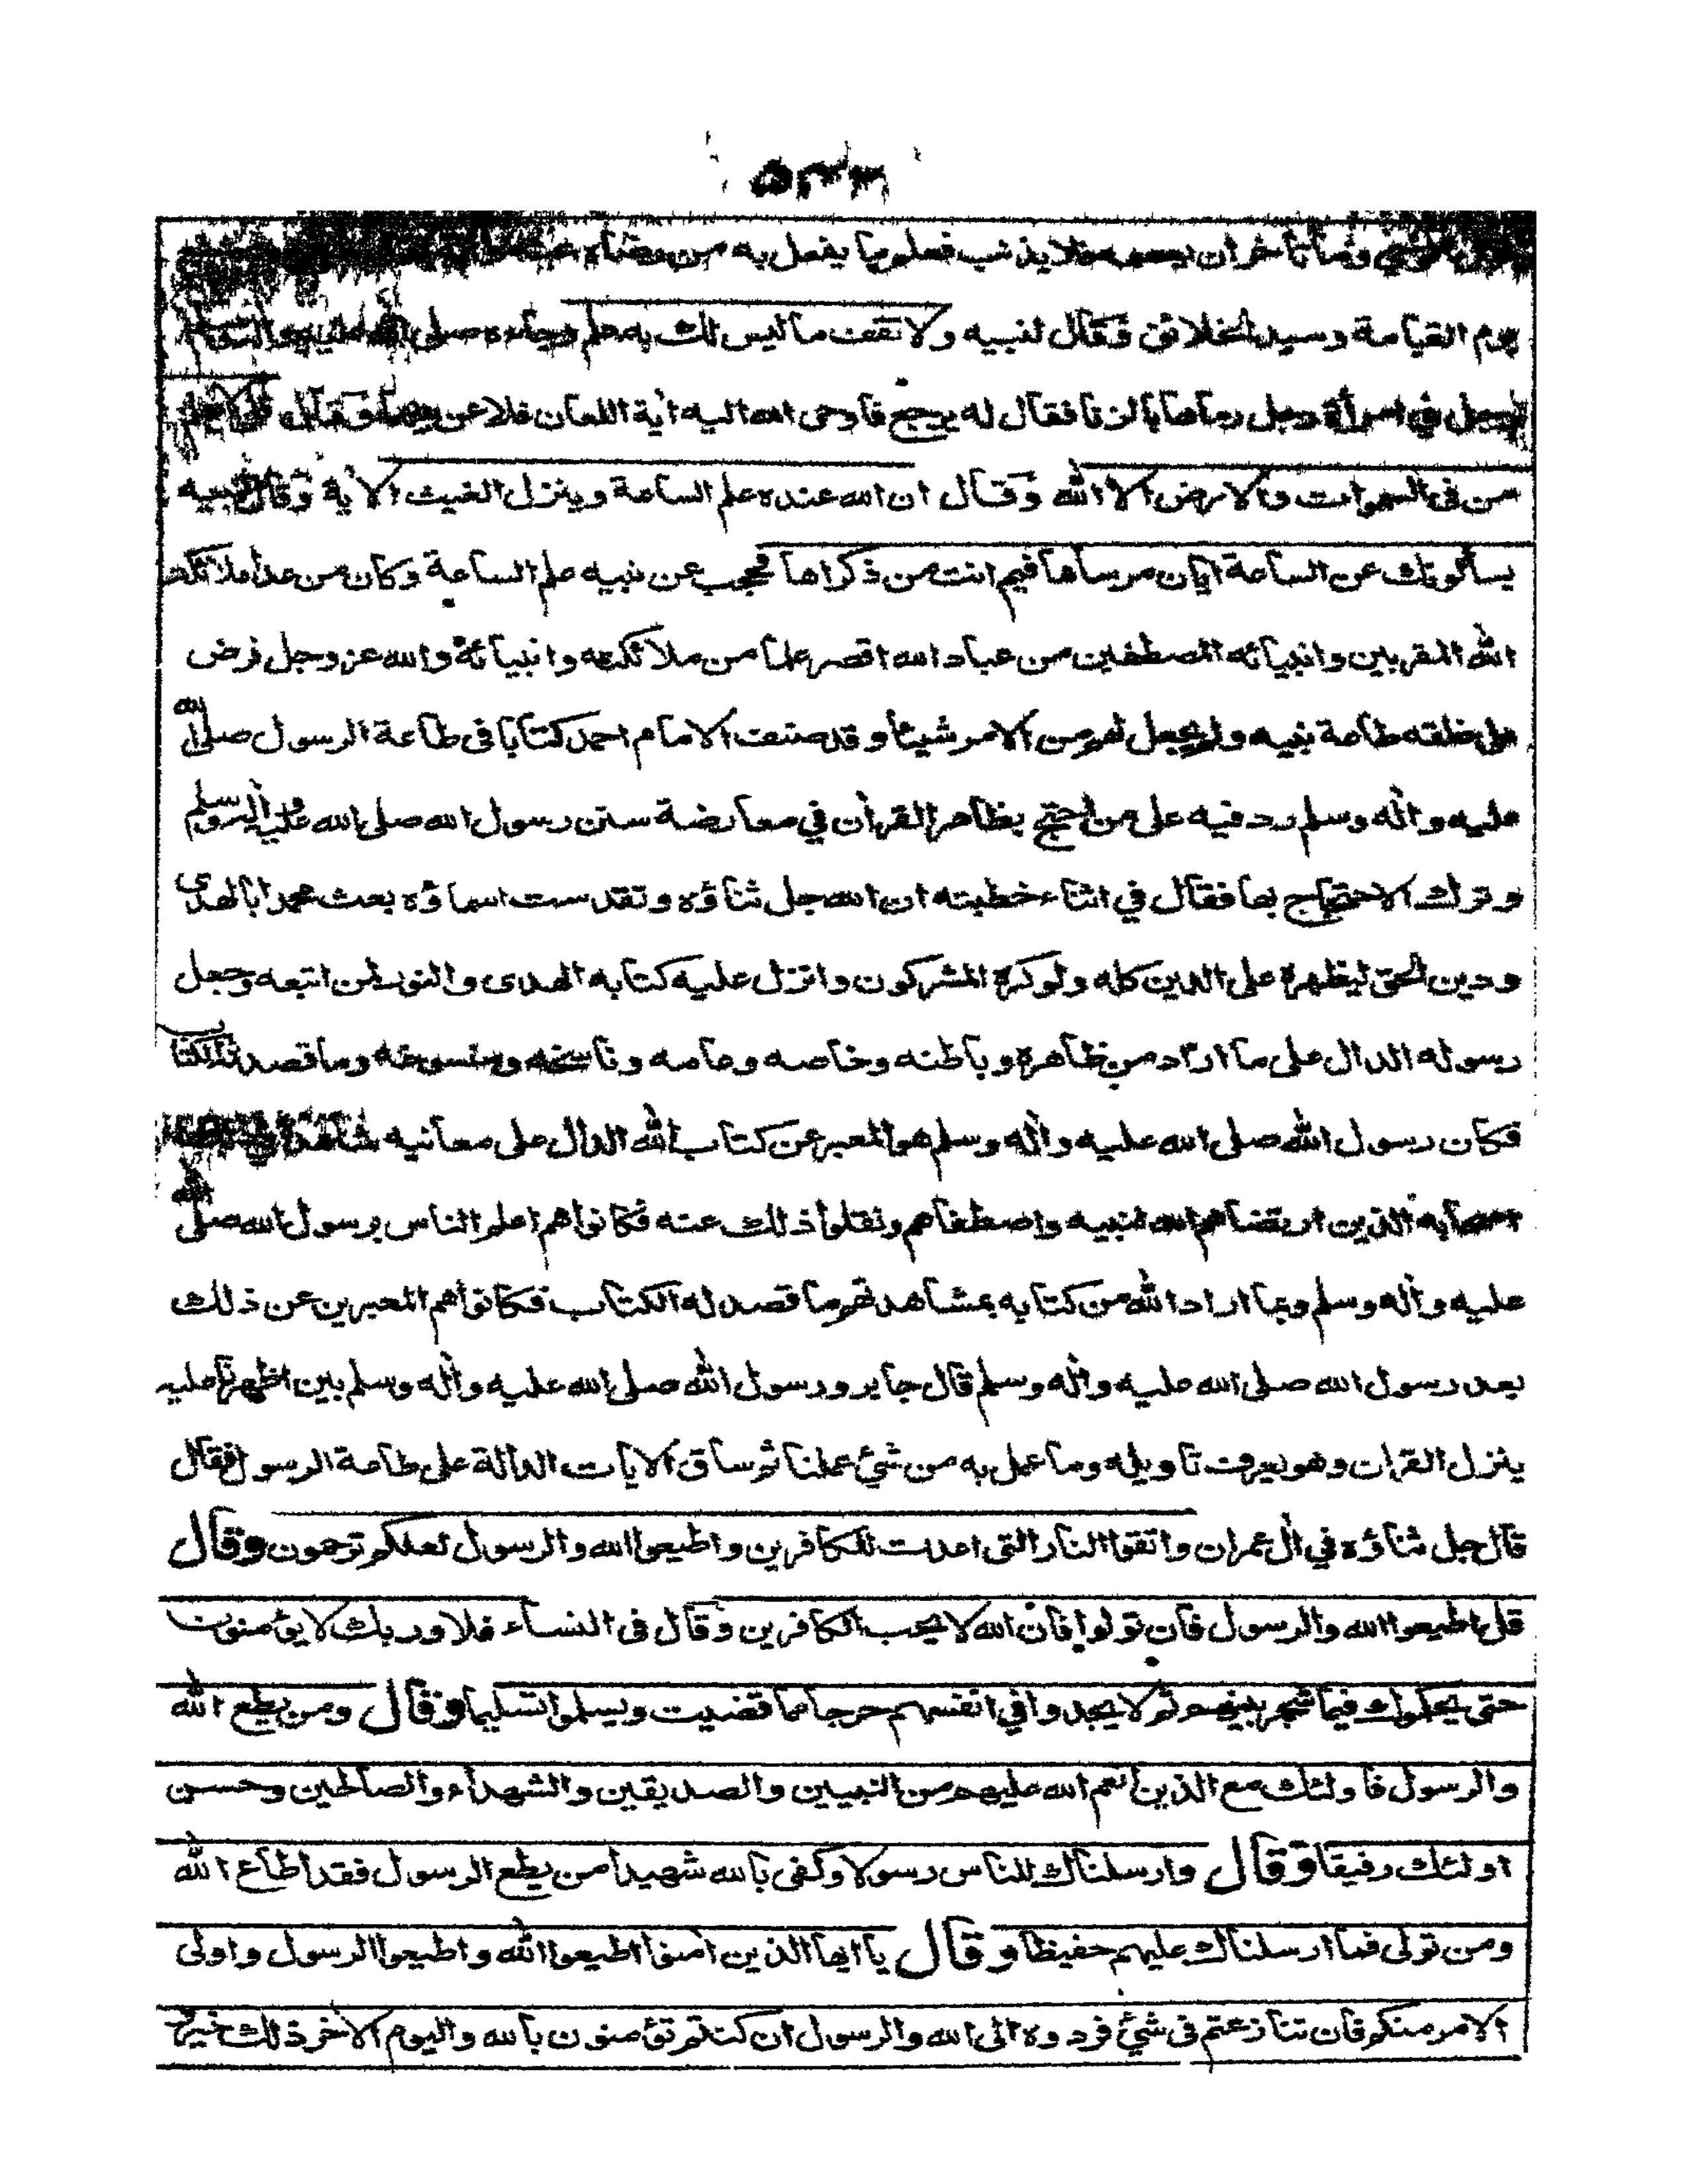 وما تأخر ان يعصمه فلا يذنب فعلم ما يفعل به من رضاه عنه
يوم القيامة وسيد الخلائق وقال لنبيه ولا تقف ما ليس لك به علم وجاءه صلى الله عليه وآله وسلم
رجل في امرأة رجل رماها بالزنا فقال له يرجع فاوحى الله اليه اٰية اللعان فلاعن بينهما وقال قل لا يعلم
من فى السموات والارض الا الله وقال ان الله عنده علم الساعة وينزل الغيث الاٰية وقال لنبيه
يسألونك عن الساعة ايان مرساها فيم انت من ذكراها فحجب عن نبيه علم الساعة وكان من عدا ملائكة
الله المقربين وانبيائه المصطفين من عباد الله اقصر علما من ملائكته وانبيائه والله عز وجل فرض
على خلقه طاعة نبيه ولم يجعل لهم من الامر شيئا وقد صنف الامام احمد كتابا فى طاعة الرسول صلى الله
عليه واٰله وسلم رد فيه على من احتج بظاهر القراٰن في معارضة سنن رسول الله صلى الله عليه واٰله وسلم
وترك الاحتجاج بها فقال في اثناء خطبته ان الله جل ثناؤه وتقدست اسماؤه بعث محمدا بالهدى
ودين الحق ليظهره على الدين كله ولو كره المشركون وانزل عليه كتابه الهدى والنور لمن اتبعه وجعل
رسوله الدال على ما اراد من ظاهره وباطنه وخاصه وعامه وناسخه ومنسوخه وما قصد له الكتاب
فكان رسول الله صلى الله عليه واٰله وسلم هو المعبر عن كتاب الله الدال على معانيه شاهده في ذلك
اصحابه الذين ارتضاهم الله لنبيه واصطفاهم ونقلوا ذلك عنه فكانوا هم اعلم الناس برسول الله صلى الله
عليه واٰله وسلم وبما اراد الله من كتابه بمشاهدتهم ما قصد له الكتاب فكانوا هم المعبرين عن ذلك
بعد رسول الله صلى الله عليه واٰله وسلم قال جابر ورسول الله صلى الله عليه واٰله وسلم بين اظهرنا عليه
ينزل القراٰن وهو يعرف تاويله وما عمل به من شئ عملنا ثم ساق الاٰيات الدالة على طاعة الرسول فقال
قال جل ثناؤه في اٰل عمران واتقوا النار التى اعدت للكافرين واطيعوا الله والرسول لعلكم ترحمون وقال
قل اطيعوا الله والرسول فان تولوا فان الله لا يحب الكافرين وقال فى النساء فلا وربك لا يؤمنون
حتى يحكموك فيما شجر بينهم ثم لا يجدوا في انفسهم حرجا مما قضيت ويسلموا تسليما وقال ومن يطع الله
والرسول فاولئك مع الذين انعم الله عليهم من النبيين والصديقين والشهداء والصالحين وحسن
اولئك رفيقا وقال وارسلناك للناس رسولا وكفى بالله شهيدا من يطع الرسول فقد اطاع الله
ومن تولى فما ارسلناك عليهم حفيظا وقال يا ايها الذين اٰمنوا اطيعوا الله واطيعوا الرسول واولى
الامر منكم فان تنازعتم فى شئ فردوه الى الله والرسول ان كنتم تؤمنون بالله واليوم الاٰخر ذلك خير و